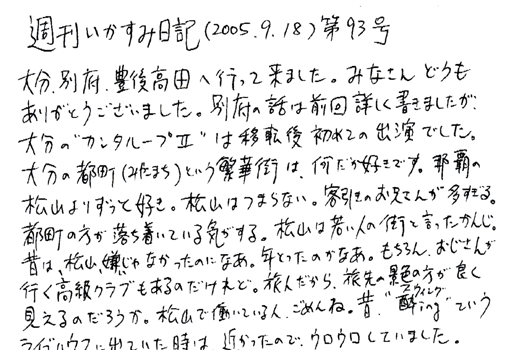 週刊いかすみ日記(2005.9.18)第93号
大分、別府、豊後高田へ行って来ました。みなさん どうも
ありがとうございました。別府の話は前回詳しく書きましたが、
大分の"カンタループⅡ"は移転後初めての出演でした。
大分の都町(みやこまち)という繁華街は、何だか好きです。那覇の
松山よりずっと好き。松山はつまらない。客引きのお兄さんが多すぎる。
都町の方が落ち着いている気がする。松山は若い人の街と言ったかんじ。
昔は、松山、嫌じゃなかったのになあ。年とったのかなあ。もちろん、おじさんが
行く高級クラブもあるのだけれど。旅人だから、旅先の景色の方が良く
見えるのだろうか。松山で働いている人、ごめんね。昔、"酔ing"(スウィング)という
ライブハウスに出ていた時は、近かったので、ウロウロしていました。